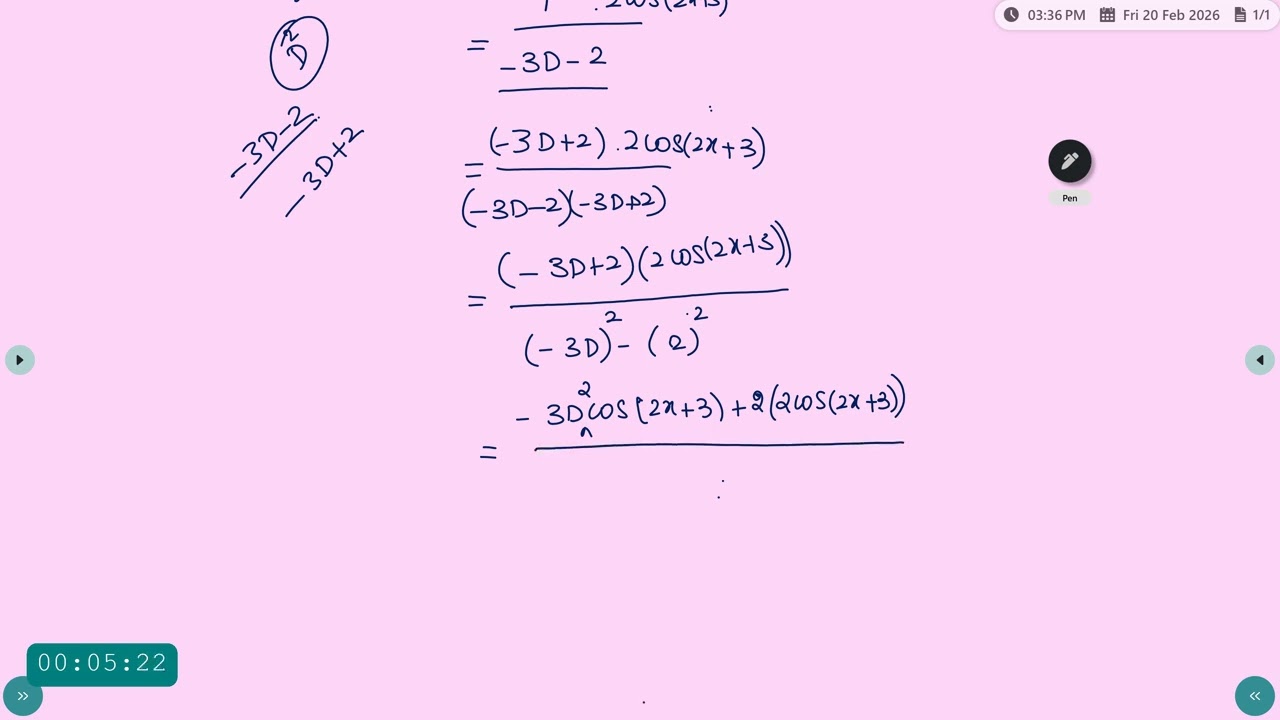 03:36 PM Fri 20 Feb 2026 1/1
2
D
= 
-3D-2
-3D-2
-3D+2
= (-3D+2).2cos(2x+3)
(-3D-2)(-3D+2)
= (-3D+2)(2cos(2x+3))
(-3D)² - (2)²
= -3D2cos(2x+3)+2(2cos(2x+3))
Pen
00:05:22